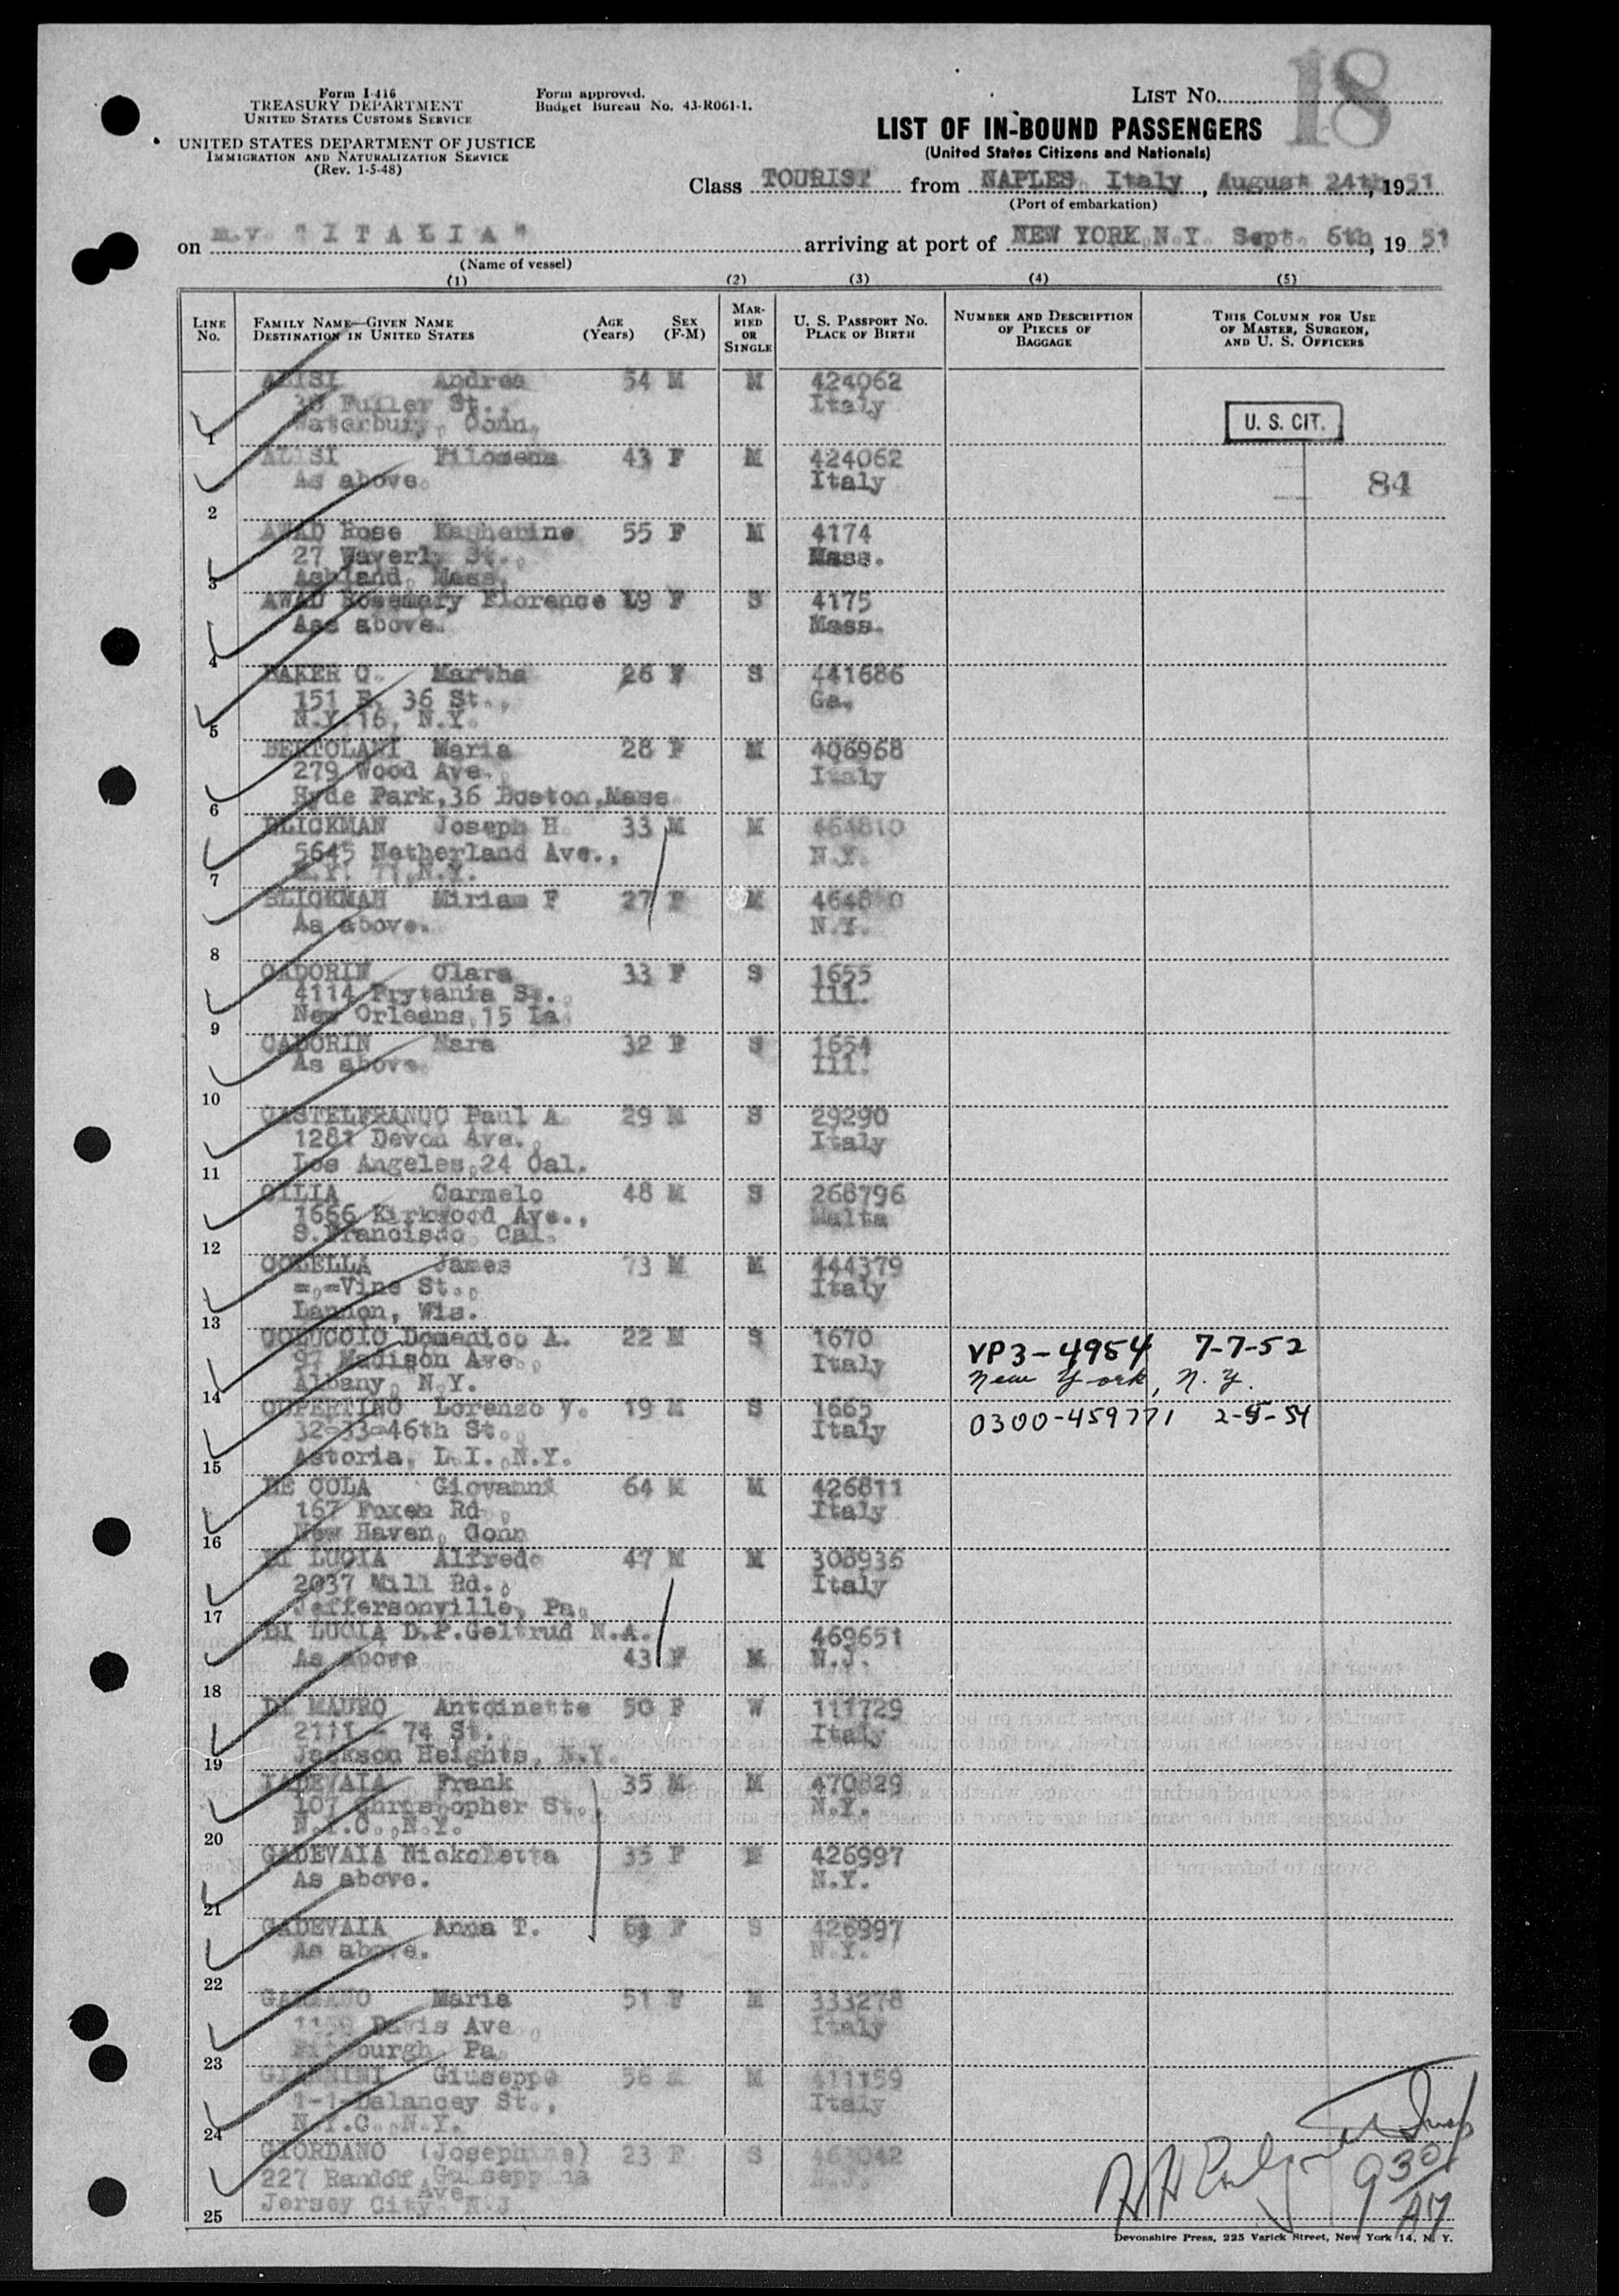 18
Form I-416
TREASURY DEPARTMENT
UNITED STATES CUSTOMS SERVICE
UNITED STATES DEPARTMENT OF JUSTICE
IMMIGRATION AND NATURALIZATION SERVICE
(Rev. 1-5-48)
Form approved.
Budget Bureau No. 43-R061-1.
LIST NO.
LIST OF IN-BOUND PASSENGERS
(United States Citizens and Nationals)
Class TOURIST from NAPLES, Italy, August 24th, 1951
(Port of embarkation)
on m.v "ITALIA" arriving at port of NEW YORK, N.Y. Sept. 6th, 19 51
(Name of vessel)
(1) (2) (3) (4) (5)
LINE NO. FAMILY NAME—GIVEN NAME DESTINATION IN UNITED STATES AGE (Years) SEX (F-M) MARRIED OR SINGLE U. S. PASSPORT NO. PLACE OF BIRTH NUMBER AND DESCRIPTION OF PIECES OF BAGGAGE THIS COLUMN FOR USE OF MASTER, SURGEON, AND U. S. OFFICERS
ALISI Andrea 54 M M 424062
38 Fuller St., Italy
Waterbury, Conn. U. S. CIT.
1
ALISI Filomena 43 F M 424062
As above. Italy 84
2
AWAD Rose Katherine 55 F M 4174
27 Waverly St., Mass.
Ashland, Mass.
3
AWAD Rosemary Florence 19 F S 4175
Ass above. Mass.
4
BAKER C. Martha 26 F S 441686
151 E. 36 St., Ga.
N.Y. 16, N.Y.
5
BERTOLANI Maria 28 F M 406968
279 Wood Ave. Italy
Hyde Park, 36 Boston, Mass
6
BLICKMAN Joseph H. 33 M M 464810
5645 Netherland Ave., N.Y.
N.Y. 71, N.Y.
7
BLICKMAN Miriam F 27 F M 464810
As above. N.Y.
8
CADORIN Clara 33 F S 1655
4114 Prytania St. Ill.
New Orleans, 15 La
9
CADORIN Mara 32 F S 1654
As above. Ill.
10
CASTELFRANCO Paul A. 29 M S 29290
1281 Devon Ave., Italy
Los Angeles, 24 Cal.
11
CILIA Carmelo 48 M S 268796
1666 Kirkwood Ave., Malta
S. Francisco, Cal.
12
COBELLA James 73 M M 444379
=,=Vine St., Italy
Lannon, Wis.
13
COLUCCIO Domenico A. 22 M S 1670 VP3-4954 7-7-52
97 Madison Ave., Italy New York, N.Y.
Albany, N.Y.
14
CUPERTINO Lorenzo V. 19 M S 1665 0300-459771 2-5-54
32-33-46th St., Italy
Astoria, L.I., N.Y.
15
DE COLA Giovanni 64 M M 426811
167 Foxen Rd., Italy
New Haven, Conn
16
DI LUCIA Alfredo 47 M M 308936
2037 Mill Rd., Italy
Jeffersonville, Pa.
17
DI LUCIA D.P. Geltrud N.A. 469651
As above 43 F M N.J.
18
DI MAURO Antoinette 50 F W 111729
2111 - 74 St. Italy
Jackson Heights, N.Y.
19
Frank 35 M M 470829
107 Christopher St., N.Y.
N.Y.C., N.Y.
20
GADEVAIA Nickoletta 35 F M 426997
As above. N.Y.
21
GADEVAIA Anna T. F S 426997
As above. N.Y.
22
Maria 51 F M 333278
Davis Ave., Italy
Pittsburgh, Pa.
23
GIANNINI Giuseppe 56 M M 411159
1-1-Dalancey St., Italy
N.Y.C., N.Y.
24
GIORDANO (Josephine) 23 F S 463042
227 Randolf Ave Guiseppina N.J.
Jersey City N.J
25
930
AM
Devonshire Press, 225 Varick Street, New York 14, N. Y.